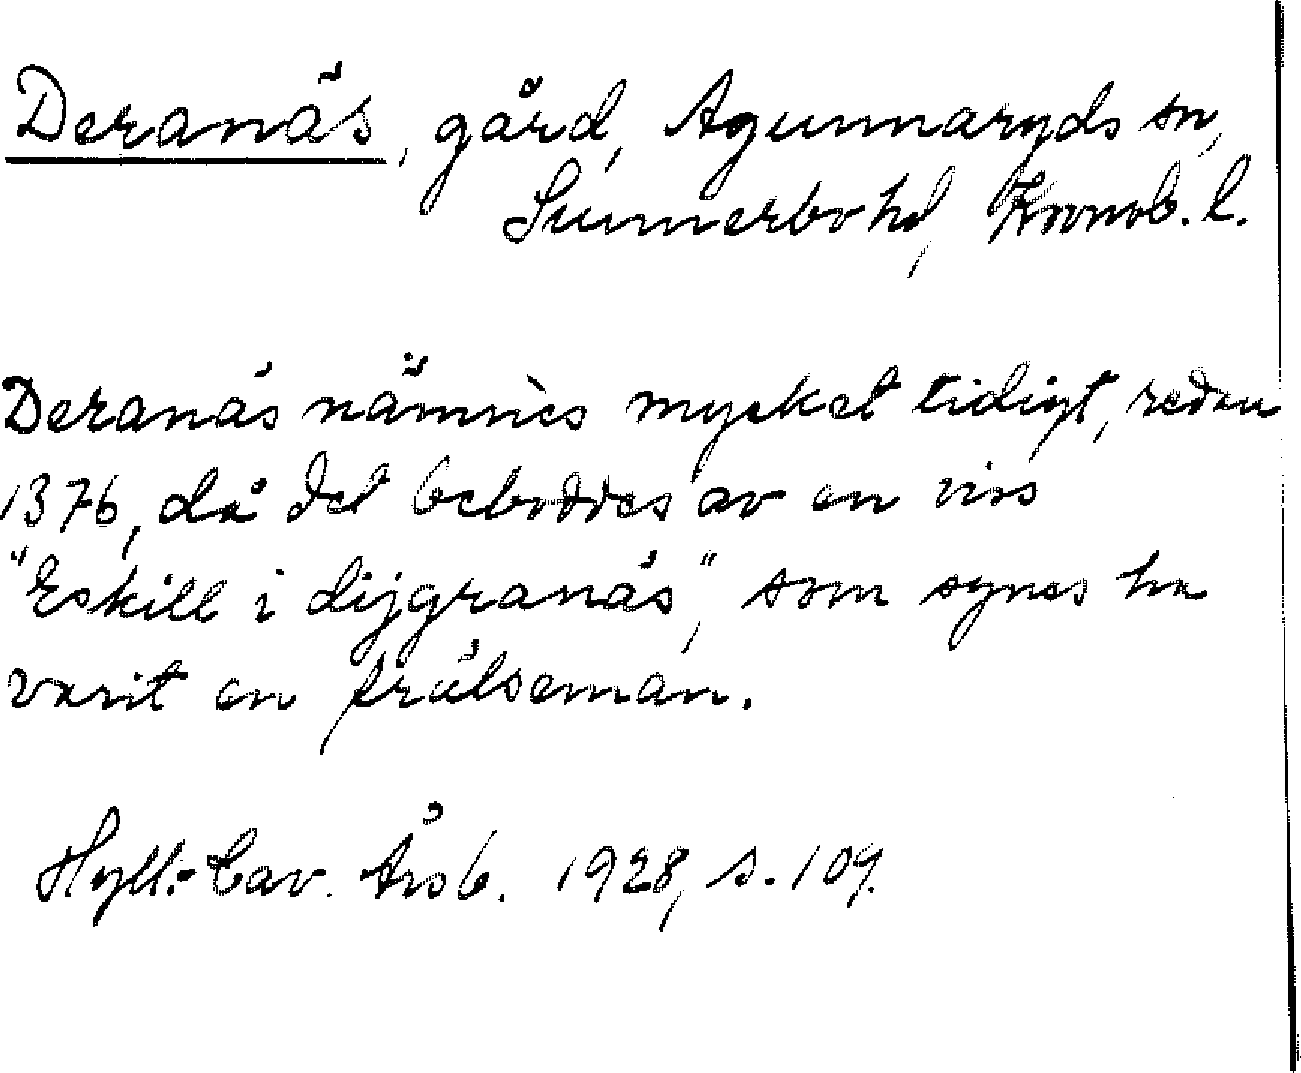 Deranäs, gård, Agunnaryds sn,
Sunnerbo hd, Kronob. l.
Deranäs nämnes mycket tidigt, redan
1376, då det beboddes av en viss
"Eskill i dijgranäs", som synes ha
varit en frälseman.
Hylt.-Cav. Årsb. 1928, s. 109.